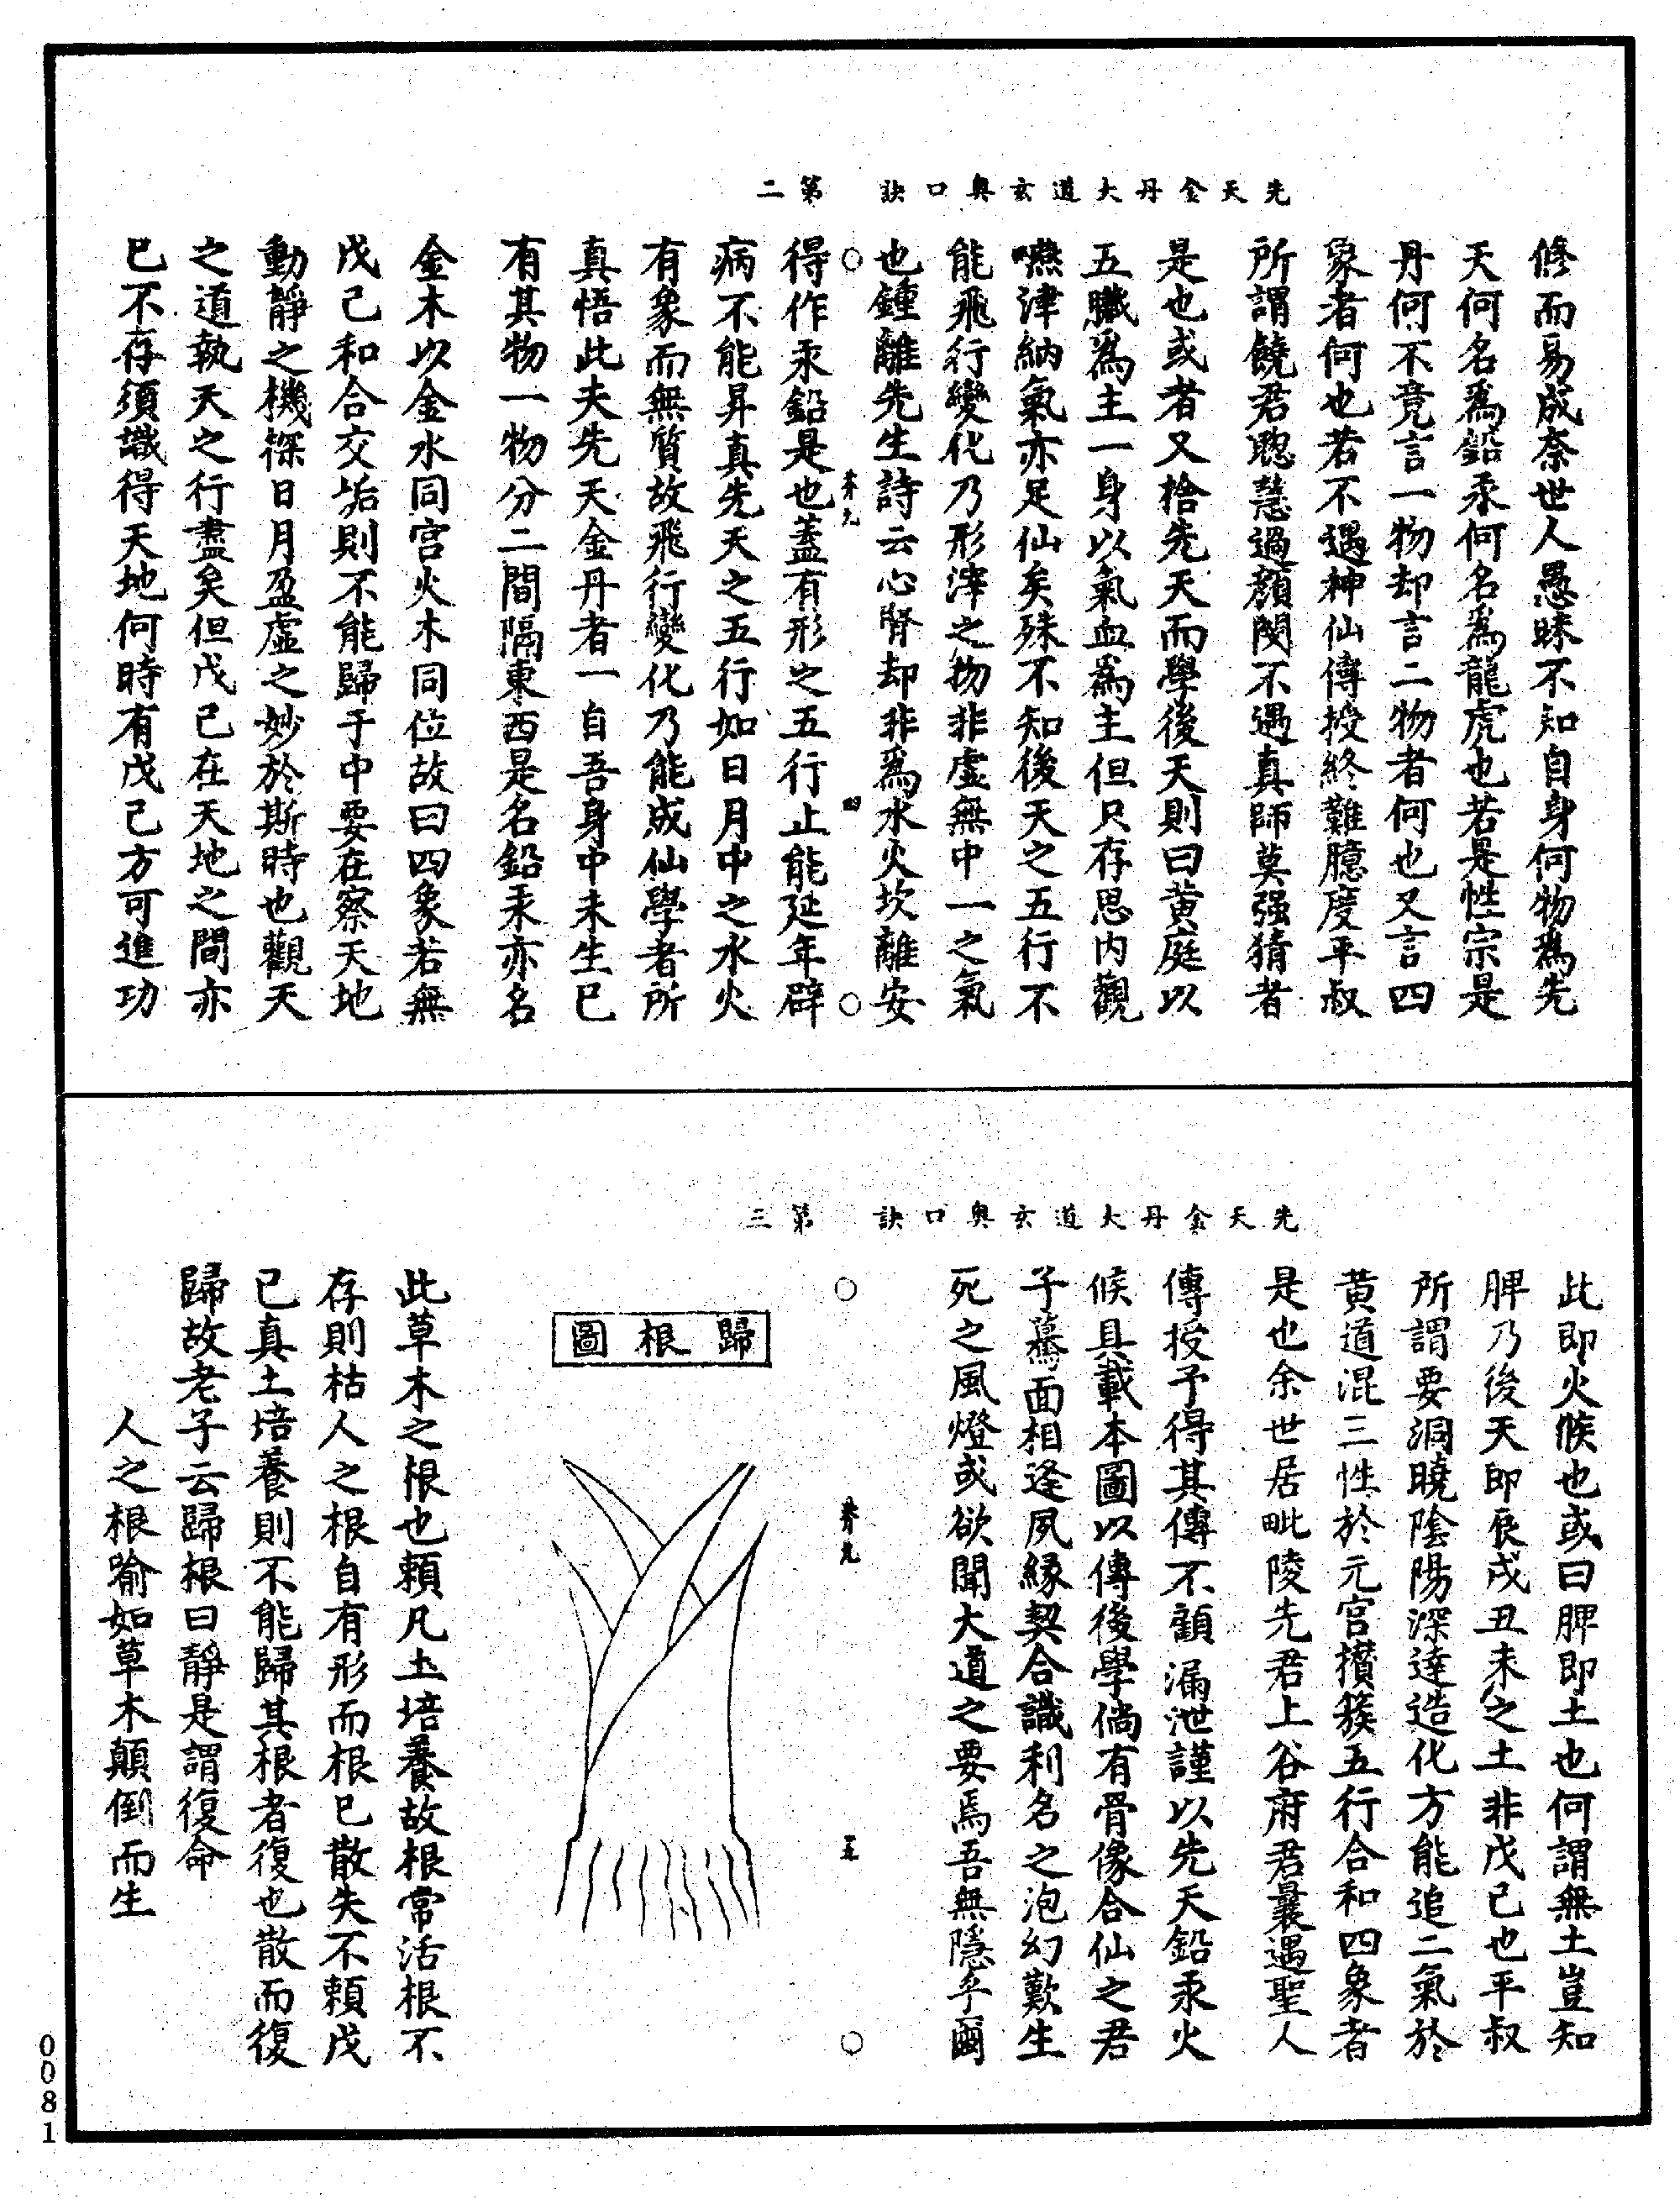 先天金丹大道玄奧口訣　第二
修而易成奈世人愚昧不知自身何物爲先
天何名爲鉛汞何名爲龍虎也若是性宗是
丹何不竟言一物却言二物者何也又言四
象者何也若不遇神仙傳授終難臆度平叔
所謂饒君聰慧過顏閔不遇真師莫强猜者
是也或者又捨先天而學後天則曰黃庭以
五臟爲主一身以氣血爲主但只存思内觀
嚥津納氣亦足仙矣殊不知後天之五行不
能飛行變化乃形滓之物非虛無中一之氣
也鍾離先生詩云心腎却非爲水火坎離安
得作汞鉛是也蓋有形之五行止能延年辟
病不能昇真先天之五行如日月中之水火
有象而無質故飛行變化乃能成仙學者所
真悟此夫先天金丹者一自吾身中未生已
有其物一物分二間隔東西是名鉛汞亦名
金木以金水同宫火木同位故曰四象若無
戊己和合交垢則不能歸于中要在察天地
動靜之機探日月盈虛之妙於斯時也觀天
之道執天之行盡矣但戊己在天地之間亦
已不存須識得天地何時有戊己方可進功
先天金丹大道玄奧口訣　第三
此即火候也或曰脾即土也何謂無土豈知
脾乃後天即辰戌丑未之土非戊己也平叔
所謂要洞曉陰陽深達造化方能追二氣於
黃道混三性於元宫攢簇五行合和四象者
是也余世居毗陵先君上谷府君曩遇聖人
傳授予得其傳不顧漏泄謹以先天鉛汞火
候具載本圖以傳後學倘有骨像合仙之君
子驀面相逢夙緣契合識利名之泡幻歎生
死之風燈或欲聞大道之要焉吾無隱乎爾
歸根圖
此草木之根也賴凡土培養故根常活根不
存則枯人之根自有形而根已散失不賴戊
已真土培養則不能歸其根者復也散而復
歸故老子云歸根曰靜是謂復命
人之根喻如草木顛倒而生
0081